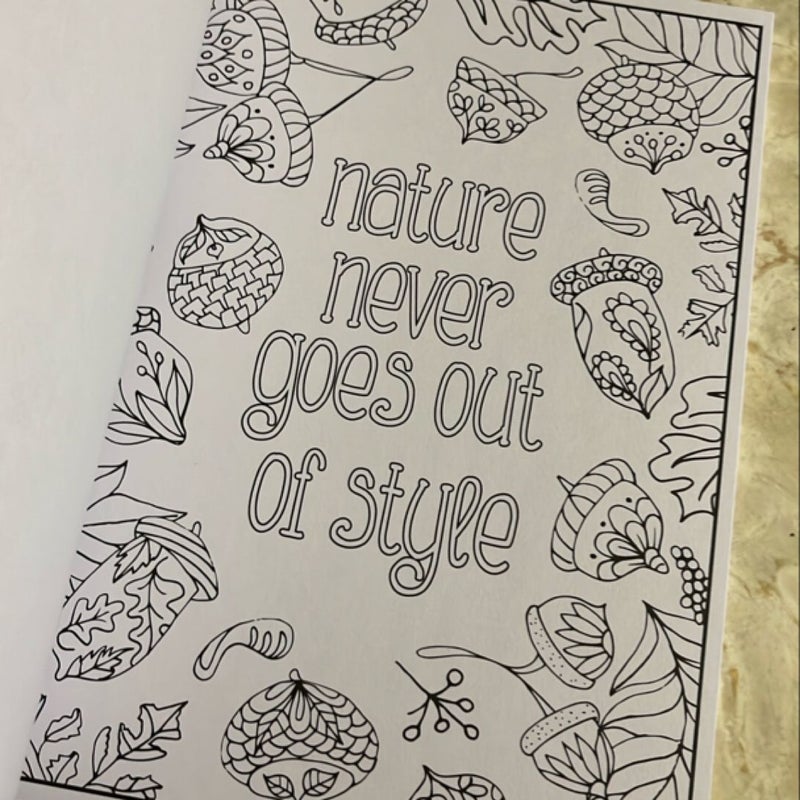 nature
never
goes out
of style